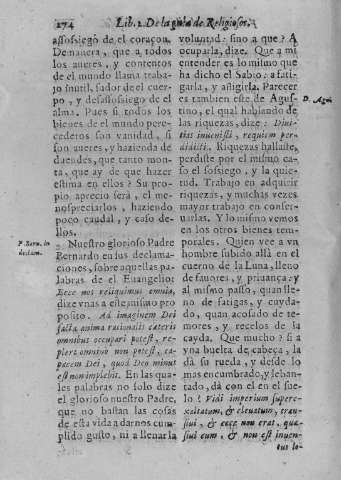 274
Lib. 2. De la guia de Religiosos.
assossiego de el coraçon.
Demanera, que a todos
los aueres, y contentos
de el mundo llama traba-
jo inutil, sudor de el cuer-
po, y desassossiego de el
alma. Pues si todos los
bienes de el mundo pere-
cederos son vanidad, si
son aueres, y hazienda de
duendes, que tanto mon-
ta, que ay de que hazer
estima en ellos? Su pro-
pio aprecio serà, el me-
nospreciarlos, haziendo
poco caudal, y caso de-
llos.
P. Bern. in
declam.
Nuestro glorioso Padre
Bernardo en sus declama-
ciones, sobre aquellas pa-
labras de el Euangelio:
Ecce nos reliquimus omnia,
dize vnas a este mismo pro-
posito. Ad imaginem Dei
facta anima rationalis cæteris
omnibus occupari potest, re-
pleri omnino non potest, ca-
pacem Dei, quod Deo minus
est non implebit. En las qua-
les palabras no solo dize
el glorioso nuestro Padre,
que no bastan las cosas
de esta vida a darnos cum-
plido gusto, ni a llenar la
voluntad: sino a que? A
ocuparla, dize. Que a mi
entender es lo mismo que
ha dicho el Sabio: a fati-
garla, y afligirla. Parecer
es tambien este de Agus-
D. Agu.
tino, el qual hablando de
las riquezas, dize: Diui-
tias inuenisti, requiem per-
didisti. Riquezas hallaste,
perdiste por el mismo ca-
so el sossiego, y la quie-
tud. Trabajo en adquirir
riquezas, y muchas vezes
mayor trabajo en conser-
uarlas. Y lo mismo vemos
en los otros bienes tem-
porales. Quien vee a vn
hombre subido allà en el
cuerno de la Luna, lleno
de fauores, y priuança: y
al mismo passo, quan lle-
no de fatigas, y cuyda-
do, quan acosado de te-
mores, y recelos de la
cayda. Que mucho? si a
vna buelta de cabeça, la
dà su rueda, y desde lo
mas encumbrado, y leban-
tado, dà con el en el sue-
lo? Vidi impium supere-
xaltatum, & eleuatum, tran-
siui, & ecce non erat, quæ-
siui eum, & non est inuen-
tus lo-